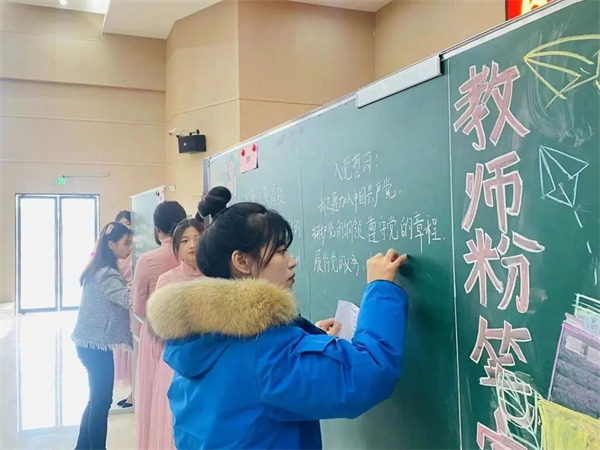 入党誓词：
我志愿加入中国共产党，
拥护党的纲领，遵守党的章程，
履行党员义务，
教师粉笔字